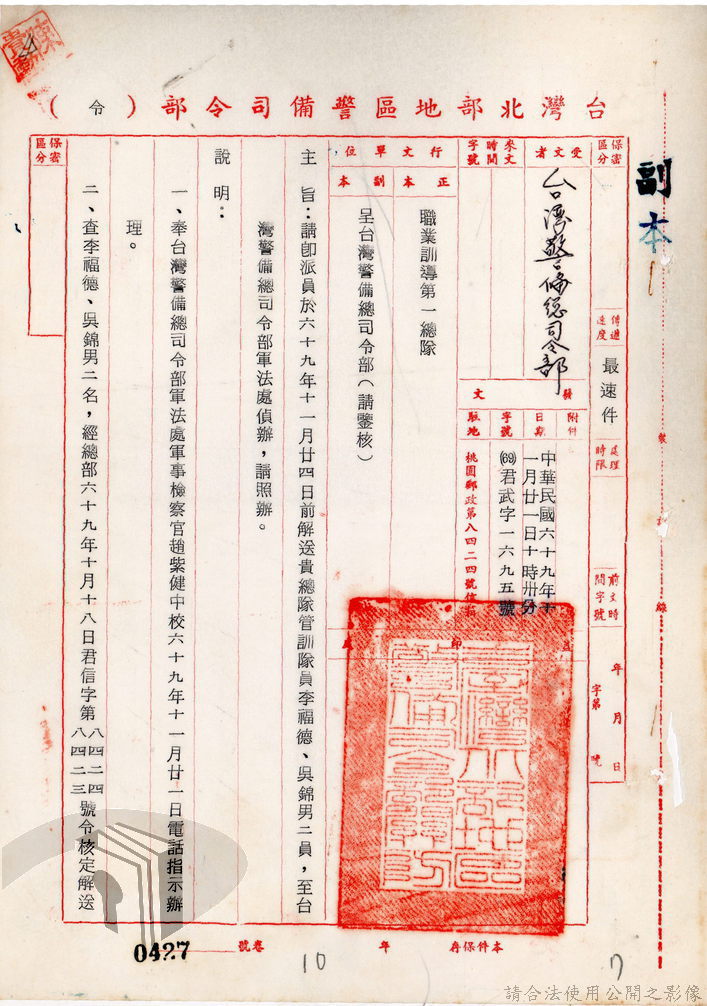 副本
台灣北部地區警備司令部（令）
保密區分
傳遞速度
最速件
處理時限
前文時間字號
年 月 日
字第 號
受文者
台灣警備總司令部
來文時間字號
附件
發文
日期
中華民國六十九年十一月廿一日十時卅分
字號
(69)君武字一六九五號
駐地
桃園郵政第八四二四號信箱
行文單位
正本
職業訓導第一總隊
副本
呈台灣警備總司令部（請鑒核）
主 旨：請即派員於六十九年十一月廿四日前解送貴總隊管訓隊員李福德、吳錦男二員，至台
灣警備總司令部軍法處偵辦，請照辦。
說 明：
一、奉台灣警備總司令部軍法處軍事檢察官趙紫健中校六十九年十一月廿一日電話指示辦
理。
二、查李福德、吳錦男二名，經總部六十九年十月十八日君信字第八四二四八四二三號令核定解送
保密區分
本件保存 年
卷號
0427
10
請合法使用公開之影像